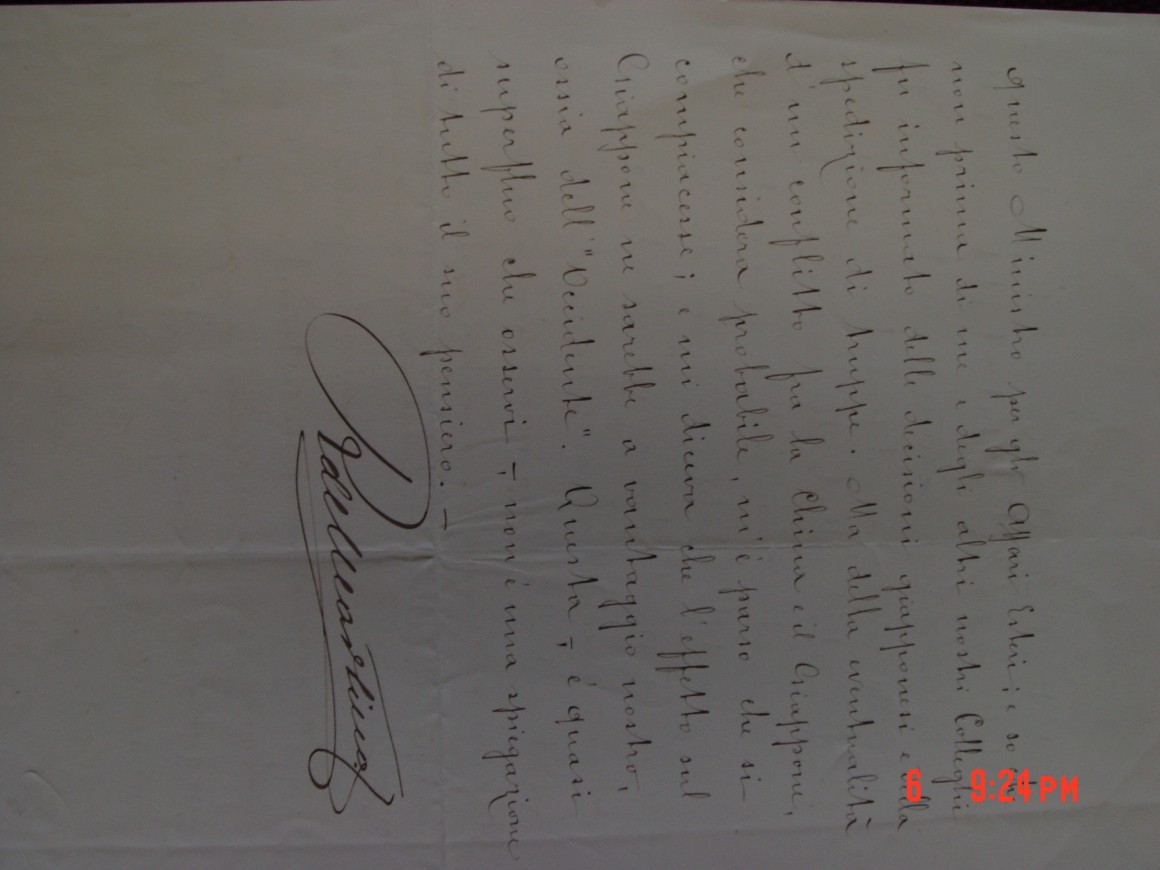 questo Ministro per gli Affari Esteri; e so che
non prima di me e degli altri nostri Colleghi
fu informato delle decisioni giapponesi e della
spedizione di truppe. Ma della eventualità
d'un conflitto fra la China e il Giappone,
che considera probabile, m'è parso che si
compiacesse; e mi diceva che l'effetto sul
Giappone ne sarebbe a vantaggio nostro,
ossia dell'"Occidente". Questa - è quasi
superfluo che osservi -, non è una spiegazione
di tutto il suo pensiero. -
6 9:24 PM